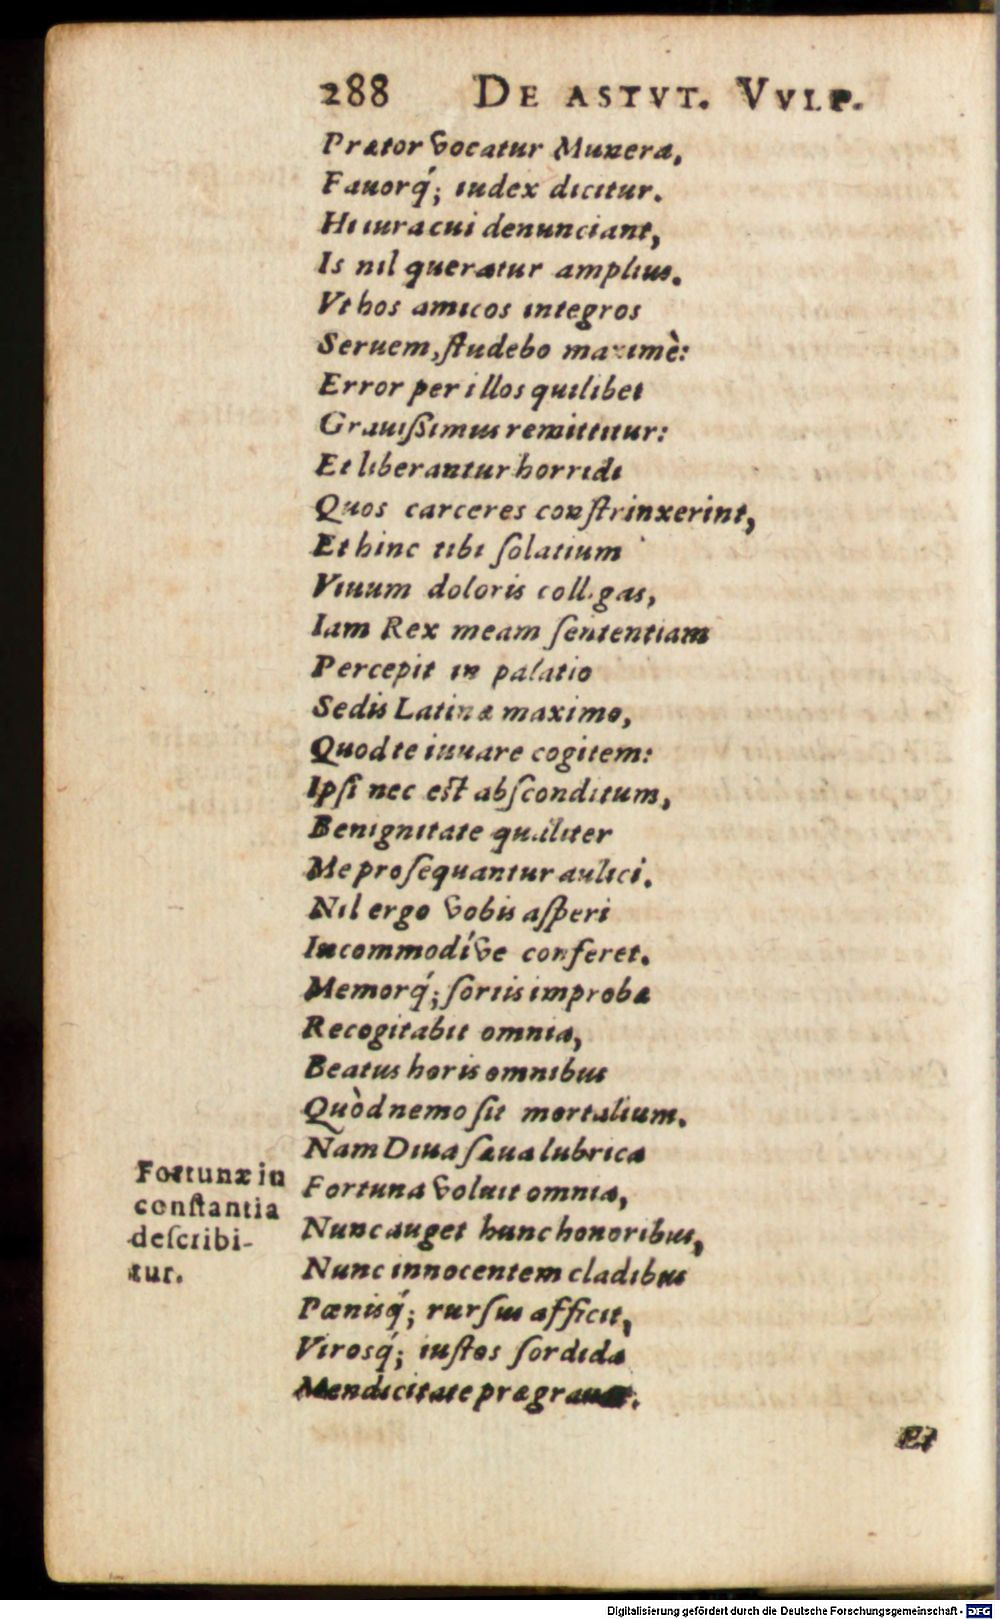 288 DE ASTVT. VVLP.
Prætor vocatur Munera,
Fauorq́; iudex dicitur.
Hi iura cui denunciant,
Is nil queratur amplius.
Vt hos amicos integros
Seruem, ſtudebo maximè:
Error per illos quilibet
Grauiſſimus remittitur:
Et liberantur horridi
Quos carceres conſtrinxerint,
Et hinc tibi ſolatium
Viuum doloris colligas,
Iam Rex meam ſententiam
Percepit in palatio
Sedis Latinæ maximo,
Quod te iuuare cogitem:
Ipſi nec eſt abſconditum,
Benignitate qualiter
Me proſequantur aulici.
Nil ergo vobis aſperi
Incommodíve conferet.
Memorq́; ſortis improbæ
Recogitabit omnia,
Beatus horis omnibus
Quòd nemo ſit mortalium.
Nam Diua ſæua lubrica
Fortuna voluit omnia,
Nunc auget hunc honoribus,
Nunc innocentem cladibus
Pœnisq́; rurſus afficit,
Virosq́; iuſtos ſordida
Mendicitate prægrauat.
Fortunæ in
conſtantia
deſcribi-
tur.
Et
Digitalisierung gefördert durch die Deutsche Forschungsgemeinschaft - DFG